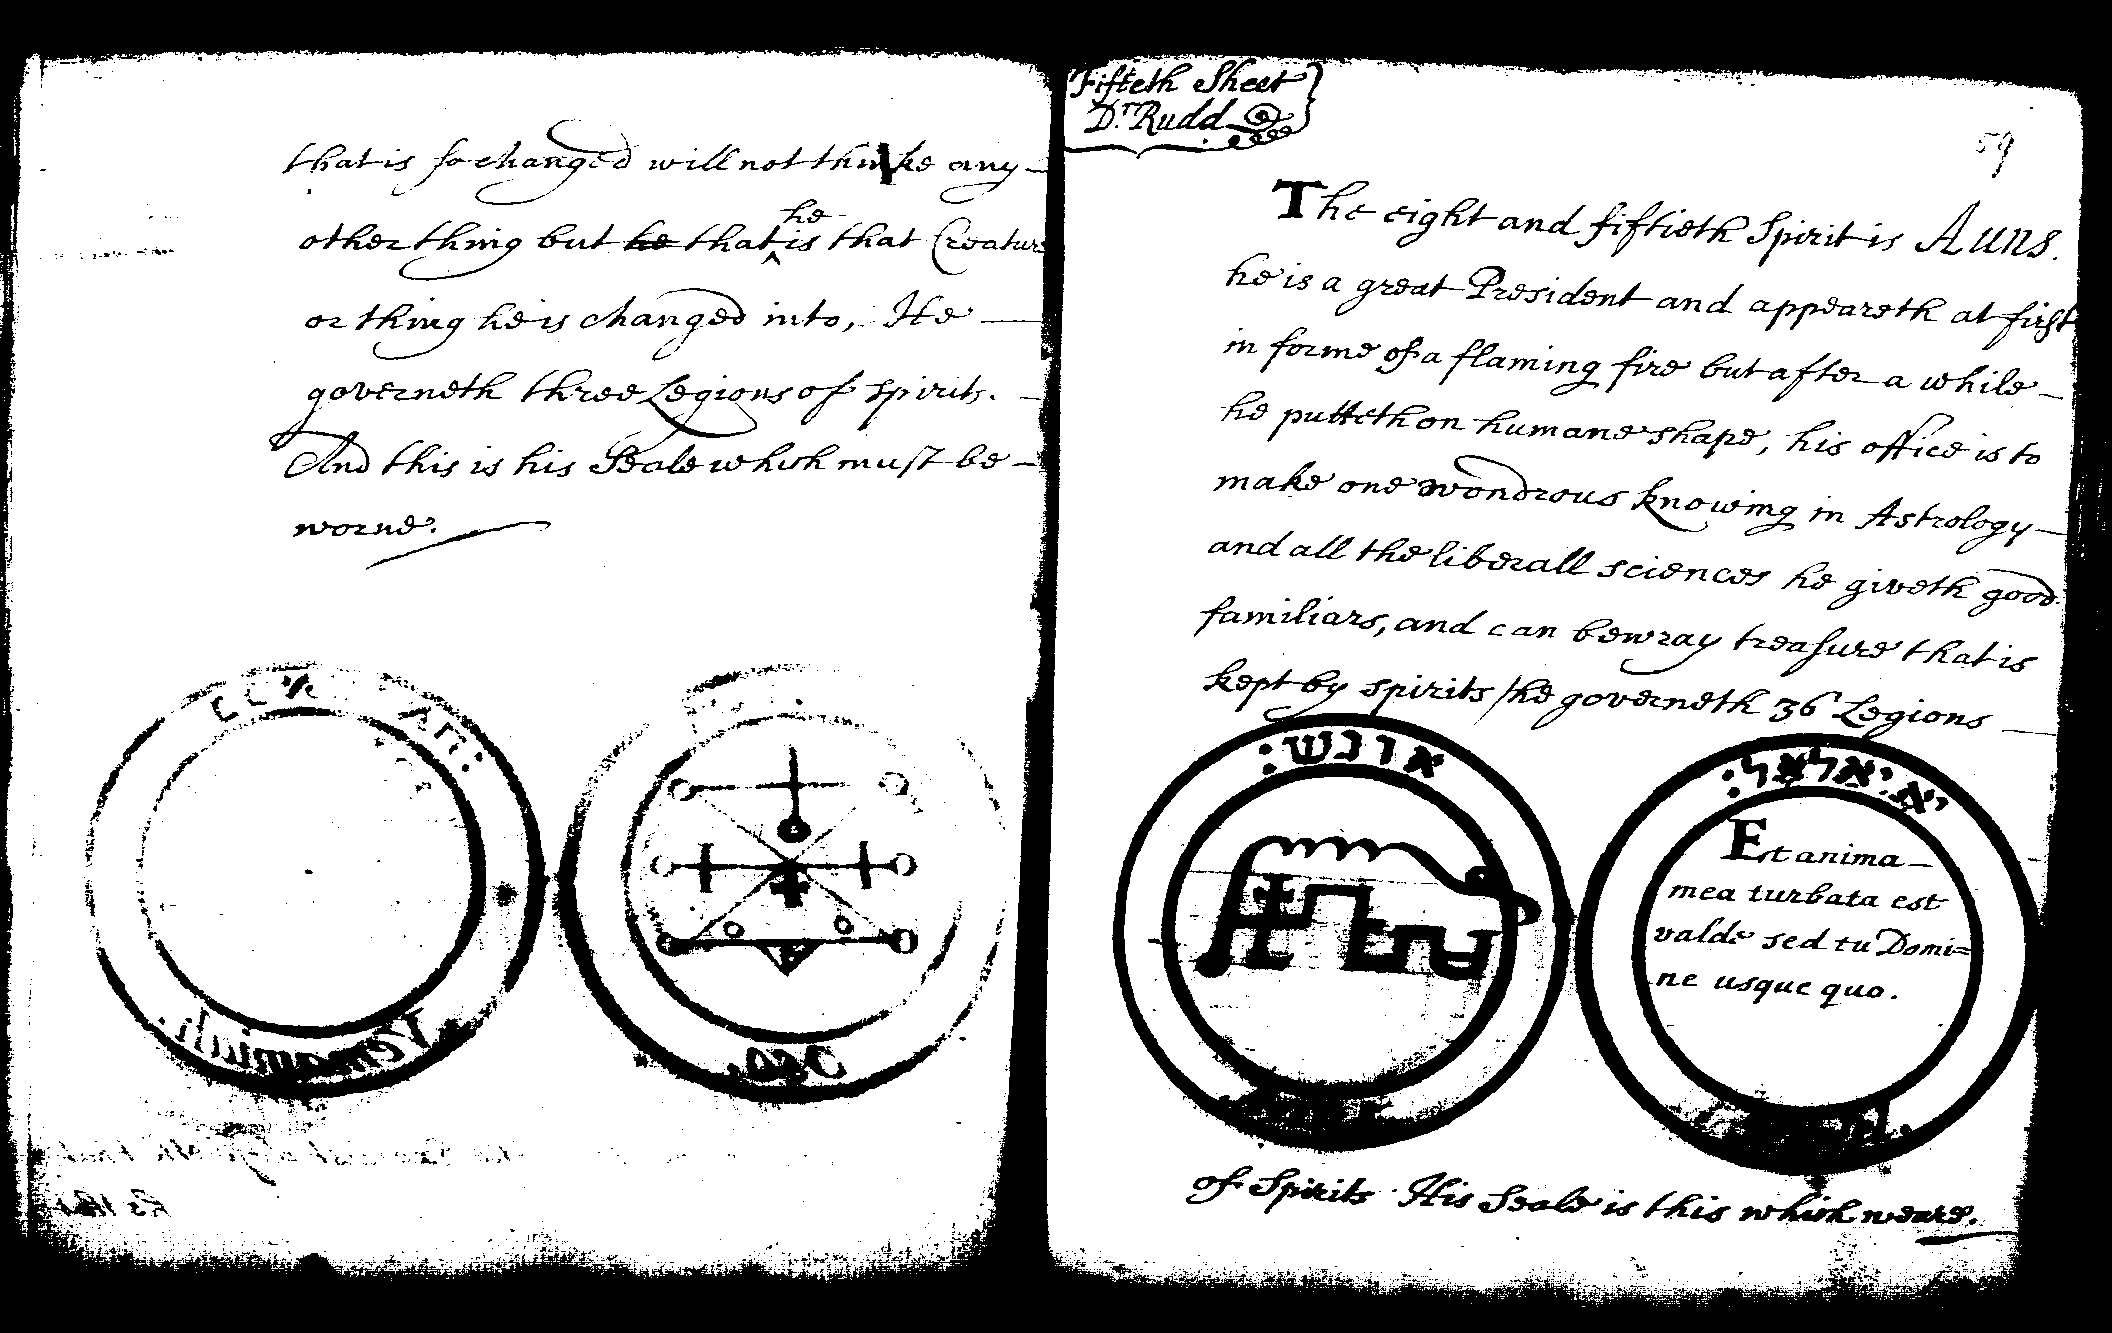 that is so changed will not thinke any
other thing but he that he is that Creature
or thing he is changed into, He
governeth three Legions of spirits.
And this is his Seale which must be
worne.
Fifteth Sheet
Dr. Rudd
59
The eight and fiftieth Spirit is Auns.
he is a great President and appeareth at first
in forme of a flaming fire but after a while
he putteth on humane shape, his office is to
make one wondrous knowing in Astrology
and all the liberall sciences he giveth good
familiars, and can bewray treasure that is
kept by spirits / he governeth 36 Legions
אונש:
יא:יאלאל:
Est anima
mea turbata est
valde sed tu Domi=
ne usque quo.
of Spirits His Seale is this which weare.